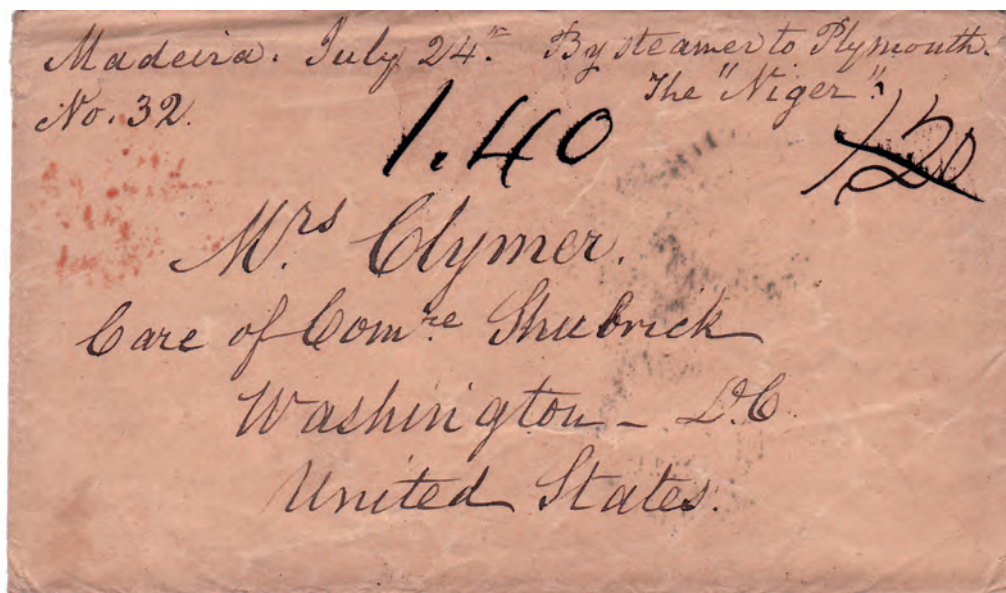 Madeira. July 24th. By steamer to Plymouth.
The "Niger".
No. 32.
1.40
120
Mrs Clymer.
Care of Comre Shubrick
Washington - D.C.
United States.